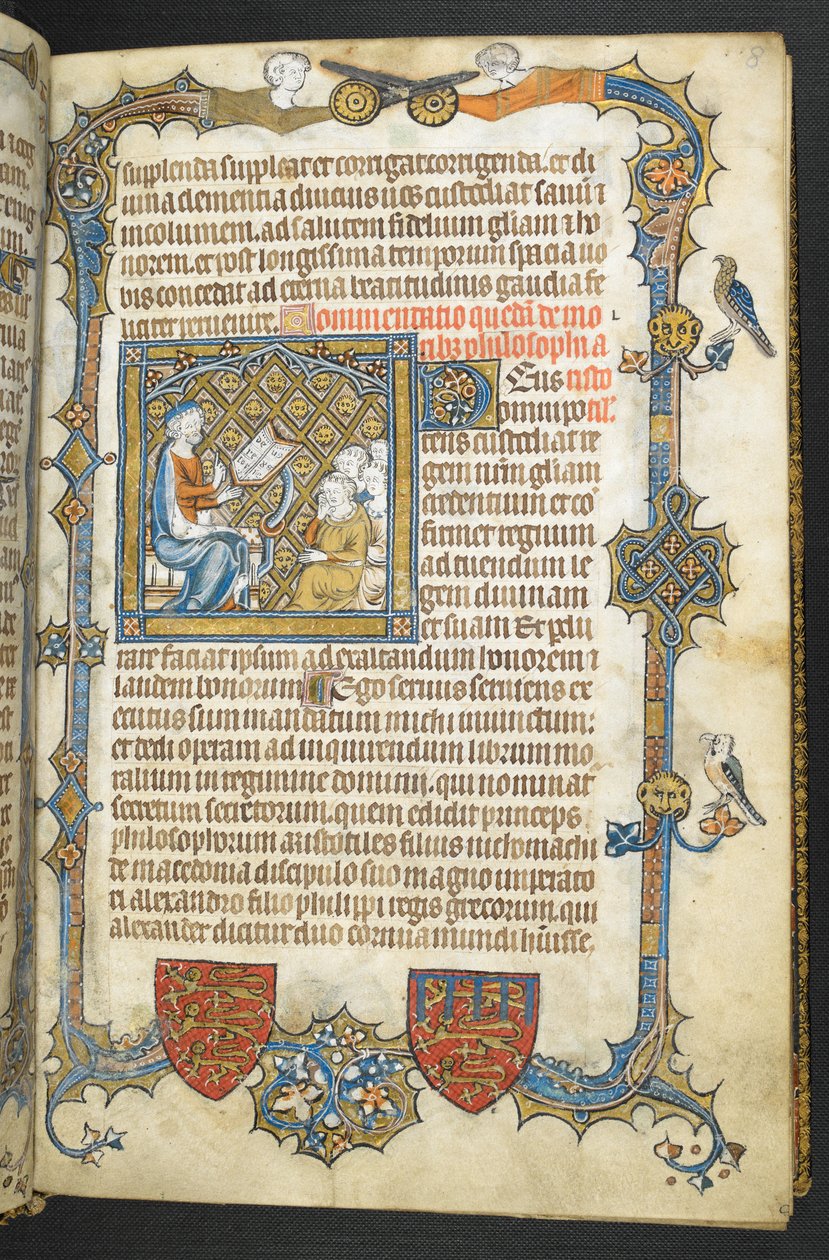 8
supplenda suppleat et corrigat corrigenda. et di
uina clementia diucius uos custodiat sanū ⁊
incolumem. ad salutem fidelium gl̄iam ⁊ ho
norem. et post longissima temporum spacia uo
bis concedat ad eterna beatitudinis gaudia fe
liciter peruenire. Commendatio quedā de mo
ribꝫ philosophia
Deus cisto
omnipo til'.
tens custodiat re
gem nr̄m gl̄iam
credentium et cō
firmet regnum
ad tuendum le
gem diuinam
et suam Et
rare faciat ipsum ad exaltandum honorem ⁊
laudem bonorum Ego seruus seruiens ex
ecutus sum mandatum michi iniunctum:
et dedi operam ad inquirendum librum mo
ralium in regimine domini. qui nominat̄
secretum secretorum. quem edidit princeps
philosophorum aristotiles filius nichomachi
de macedonia discipulo suo magno imperato
ri alexandro filio philippi regis grecorum. qui
alexander dicitur duo cornua mundi hūisse.